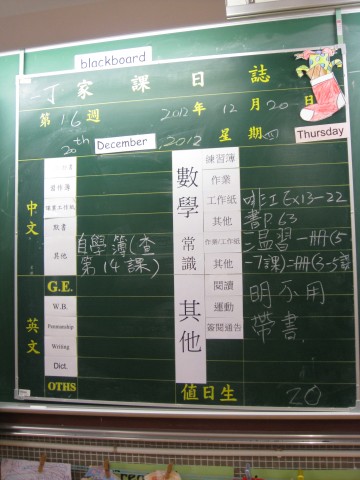 blackboard
丁家課日誌
第16週 2012年12月20日
20th December, 2012 星期四 Thursday
中文
習作簿
默書
其他 自學簿(查
第14課)
英文
G.E.
W.B.
Penmanship
Writing
Dict.
OTHS
數學
練習簿
作業
工作紙 啡工Ex13-22
其他 書P.63
常識
作業/工作紙 一冊(5
其他 -7課)二冊(3-5課)
其他
閱讀 明不用
運動 帶書
簽閱通告
值日生 20